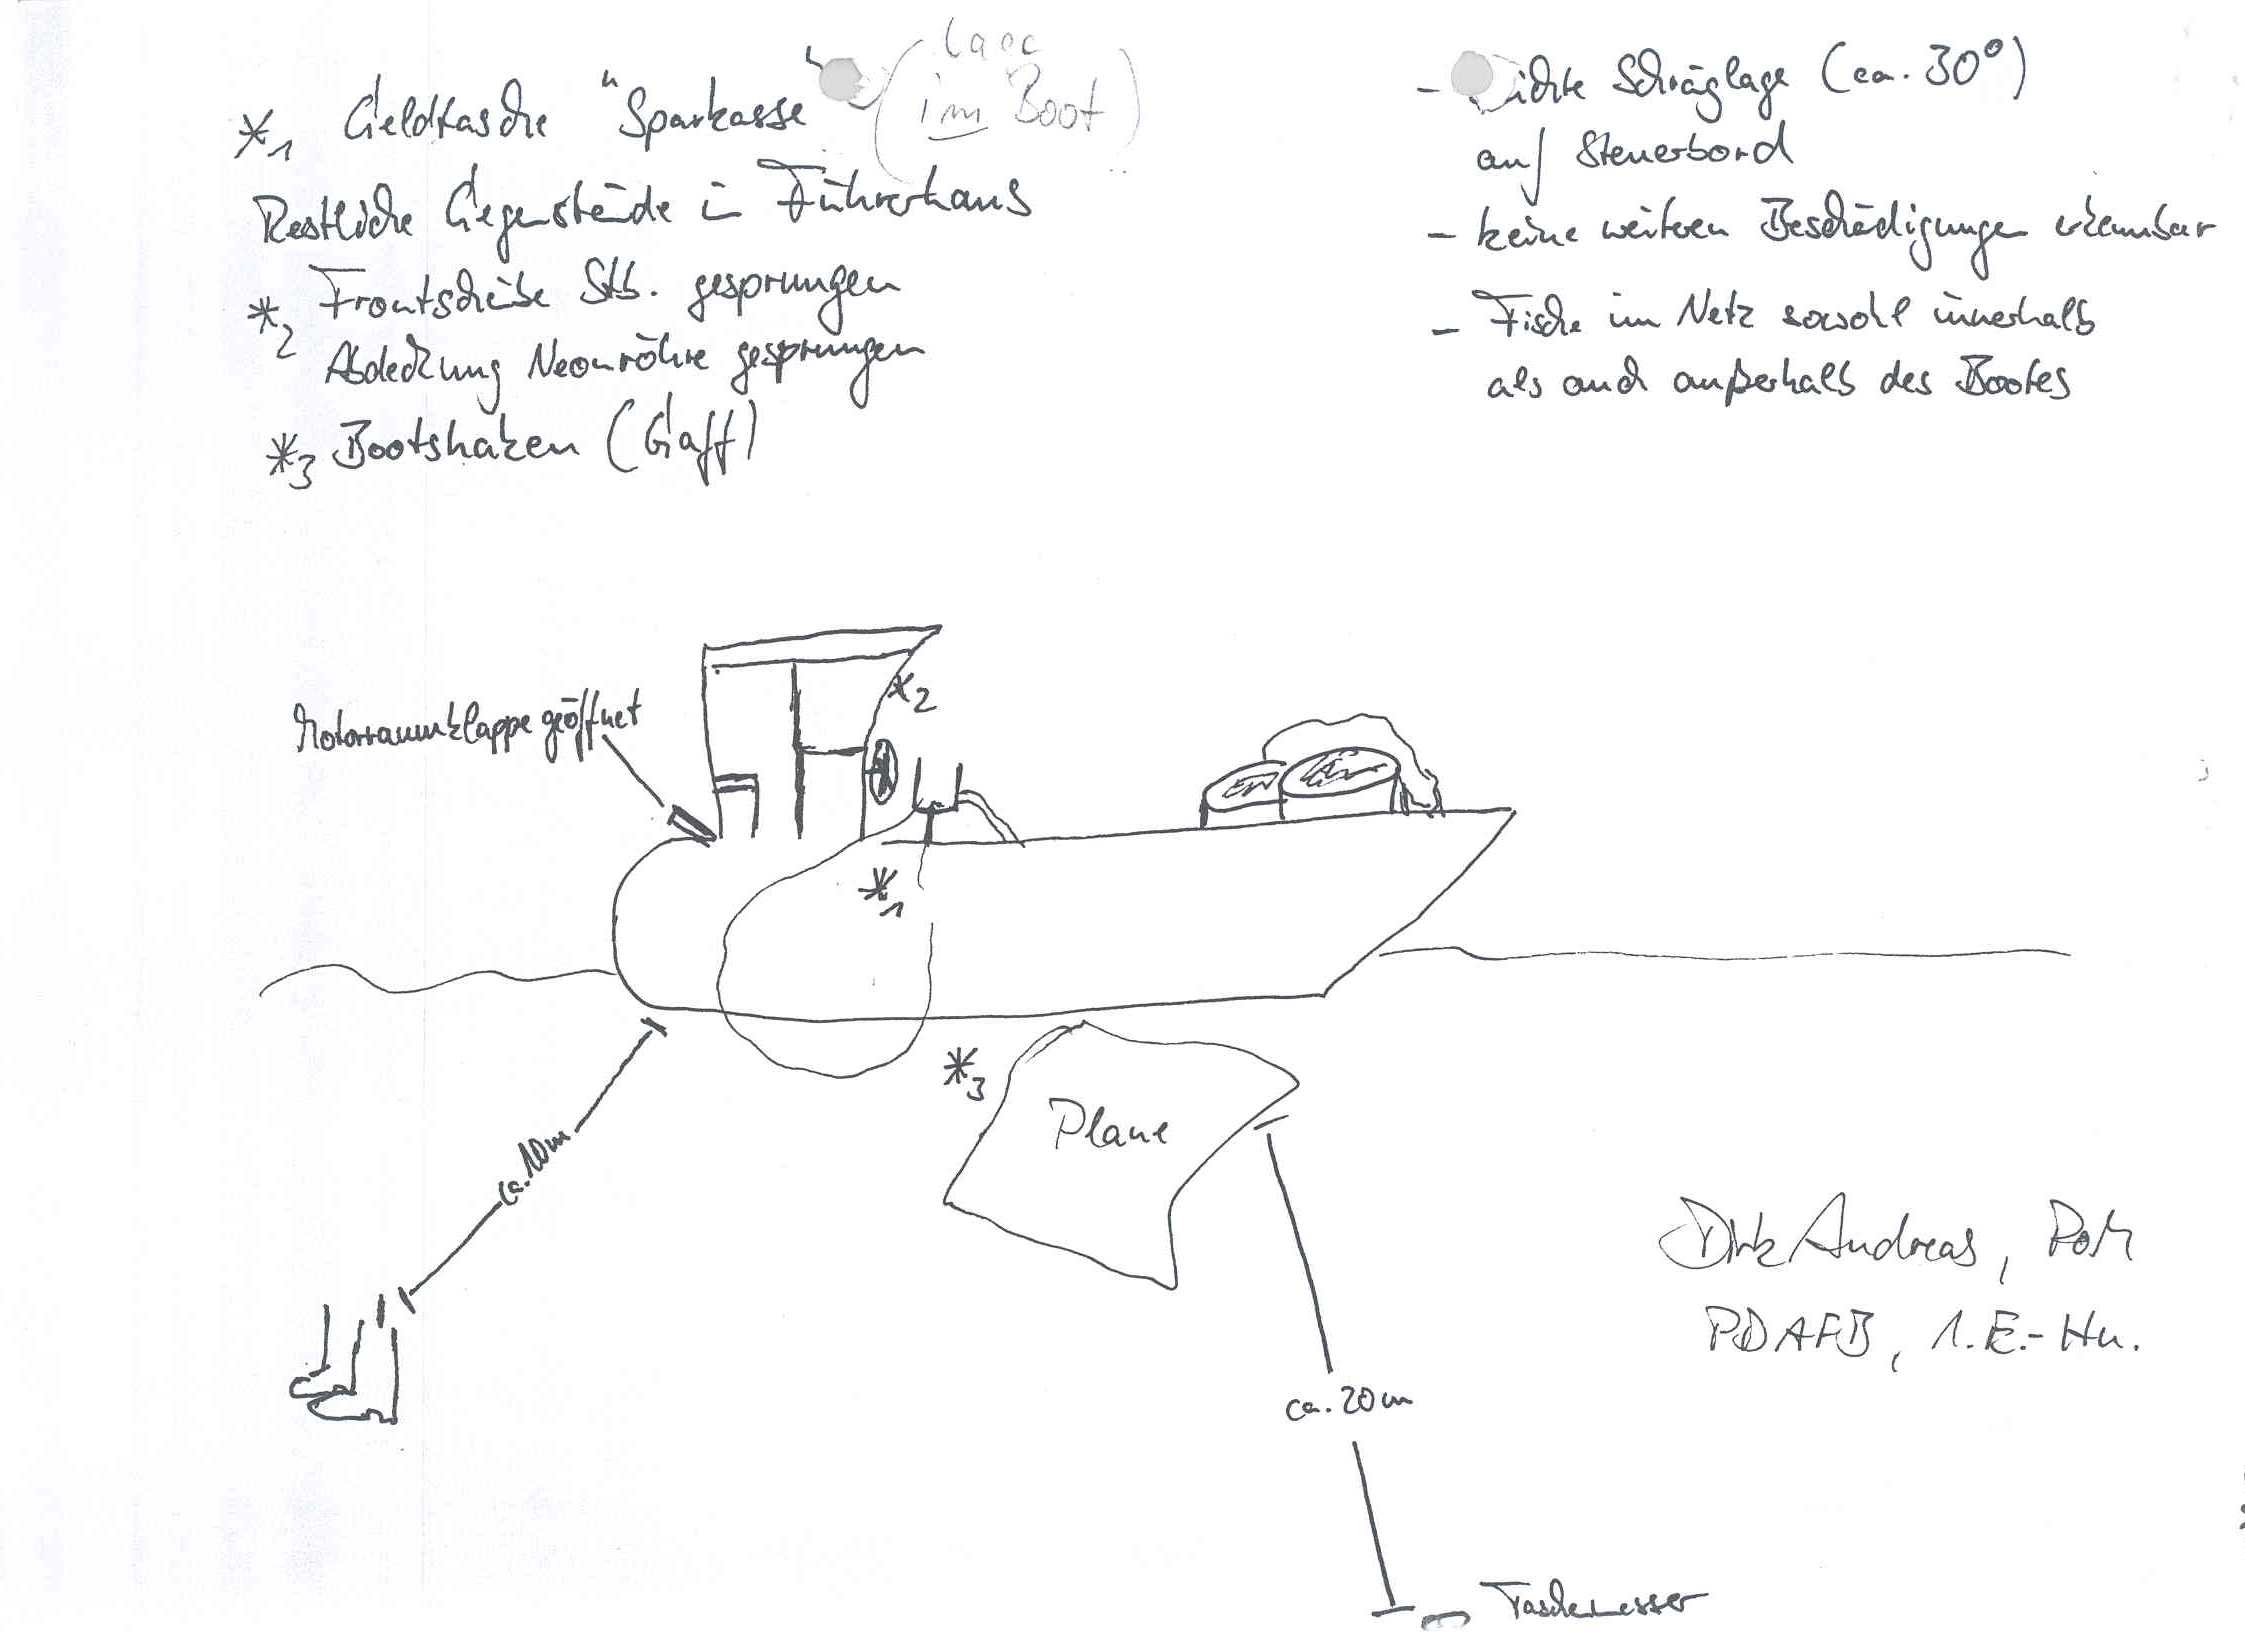 lag
*1 Geldtasche "Sparkasse" (im Boot)
Restliche Gegenstände in Führerhaus
*2 Frontscheibe Stb. gesprungen
Abdeckung Neonröhre gesprungen
*3 Bootshaken (Gaff)
- Leichte Schräglage (ca. 30°)
auf Steuerbord
- keine weiteren Beschädigungen erkennbar
- Fische im Netz sowohl innerhalb
als auch außerhalb des Bootes
*2
Motorraumklappe geöffnet
*1
*3
Plane
ca. 10m
Dirk Andreas, PoM
PDAFB, 1.E.-Hu.
ca. 20m
Taschenmesser